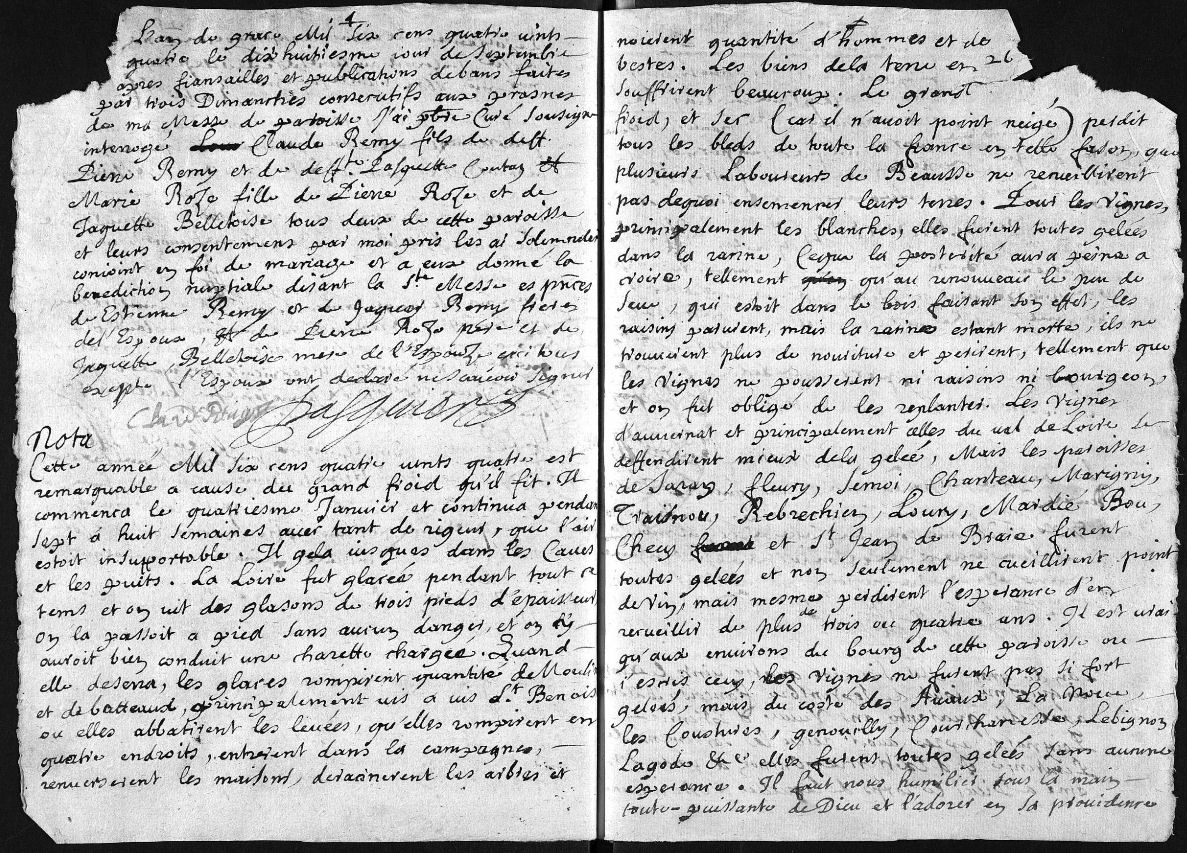 L'an de grace Mil six cens quatre vints
quatre le dix huitiesme jour de Septembre
apres fiansailles et publications de bans faites
par trois Dimanches consecutifs aux prosnes
de ma Messe de paroisse J'ai pbre Curé Sousigné
interrogé Claude Remy fils de deff.
Pierre Remy et de deff.te Pasquette Coutan Et
Marie Roze fille de Pierre Roze et de
Jaquette Belletoise tous deux de cette paroisse
et leurs consentemens par moi pris les ai Solemnelem
conjoint en foi de mariage et a eux donné la
benediction nuptiale disant la Ste Messe es pnces
de Estienne Remy et de Jaques Remy freres
del'Espoux, Et de Pierre Roze pere et de
Jaquette Belletoise mere de l'Espouze qui tous
exepté l'Espoux ont declaré ne scavoir signer
Nota
Cette année Mil six cens quatre vints quatre est
remarquable a cause du grand froid qu'il fit. Il
commenca le quatriesme Janvier et continua pendan
sept à huit semaines avec tant de rigeur, que l'air
estoit insupportable. Il gela jusques dans les Caves
et les puits. La Loire fut glacée pendant tout ce
tems et on vit des glasons de trois pieds d'épaisseur
on la passoit a pied sans aucun danger, et on y
auroit bien conduit une charette chargée. Quand
elle deserra, les glaces rompirent quantité de Moulin
et de batteaux, principalement vis a vis St. Benois
ou elles abbatirent les levées, qu'elles rompirent en
quatre endroits, entrerent dans la campagne,
renverserent les maisons, deracinerent les arbres et
noierent quantité d'hommes et de
bestes. Les biens dela terre en 26
souffrirent beaucoup. Le grand
froid, et sec (car il n'avoit point neigé) perdit
tous les bleds de toute la france en telle fason, que
plusieurs Laboureurs de Beausse ne recueillirent
pas dequoi ensemencer leurs terres. Pour les vignes,
principalement les blanches, elles furent toutes gelées
dans la racine, Ceque la posterité aura peine a
croire, tellement qu'au renouveau le peu de
seve, qui estoit dans le bois faisant son effet, les
raisins parurent, mais la racine estant morte, ils ne
trouverent plus de nouriture et perirent, tellement que
les vignes ne pousserent ni raisins ni bourgeon,
et on fut obligé de les replanter. Les vignes
d'auvernat et principalement celles du val de Loire se
deffendirent mieux dela gelée, Mais les paroisses
de Saran, fleury, Semoi, Chanteau, Marigni,
Traisnou, Rebrechien, Loury, Mardié Bou,
Checy et St Jean de Braie furent
toutes gelées et non seulement ne cueillirent point
de vin, mais mesme perdirent l'esperance d'en
recueillir de plus de trois ou quatre ans. Il est vrai
qu'aux environs du bourg de cette paroisse ou
j'escris ceci, les vignes ne furent pas si fort
gelées, mais du costé des Avaux, La Noue,
les Coustures, genouilly, Lebignon
Lagode &c elles furent toutes gelées sans aucune
esperance. Il faut nous humilier sous la main
toute-puissante de Dieu et l'adorer en sa providence